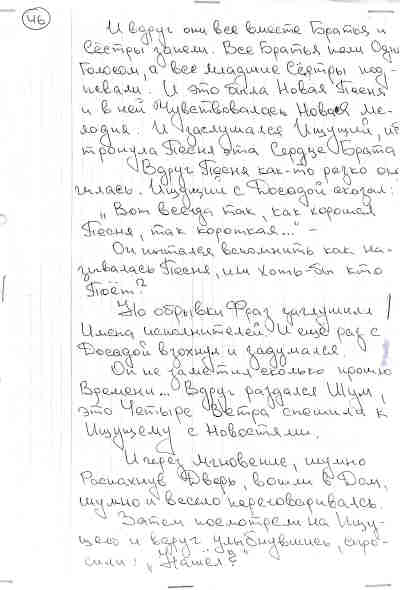 46
И вдруг они все вместе Братья и
Сёстры запели. Все Братья пели Одним
Голосом, а все младшие Сёстры под-
певали. И это была Новая Песня
и в ней Чувствовалась Новая Ме-
лодия. И заслушался Ищущий,
тронула Песня эта Сердце Брата
Вдруг Песня как-то резко окон
чилась. Ищущий с Досадой сказал:
„Вот всегда так, как хорошая
Песня, так короткая..." –
Он пытался вспомнить как на-
зывалась Песня, или хоть-бы кто
Поёт?
Но обрывки Фраз заглушили
Имена исполнителей. И ещё раз с
Досадой вздохнул и задумался.
Он не заметил сколько прошло
Времени... Вдруг раздался Шум,
это Четыре Ветра спешили к
Ищущему с Новостями.
И через мгновение, шумно
Распахнув Дверь, вошли в Дом,
шумно и весело переговариваясь.
Затем посмотрели на Ищу-
щего и вдруг улыбнувшись, спро-
сили: „Нашёл?"